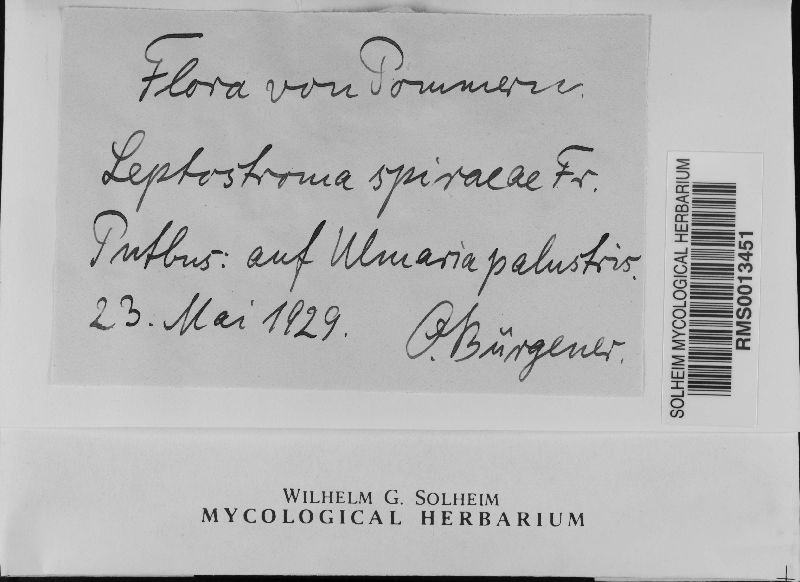 Flora von Pommern.
Leptostroma spiraeae Fr.
Putbus: auf Ulmaria palustris.
23. Mai 1929. O. Bürgener.
SOLHEIM MYCOLOGICAL HERBARIUM
RMS0013451
WILHELM G. SOLHEIM
MYCOLOGICAL HERBARIUM